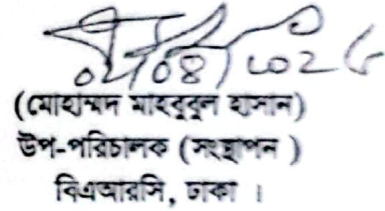 (মোহাম্মদ মাহবুবুল হাসান)
উপ-পরিচালক (সংস্থাপন )
বিএআরসি, ঢাকা ।